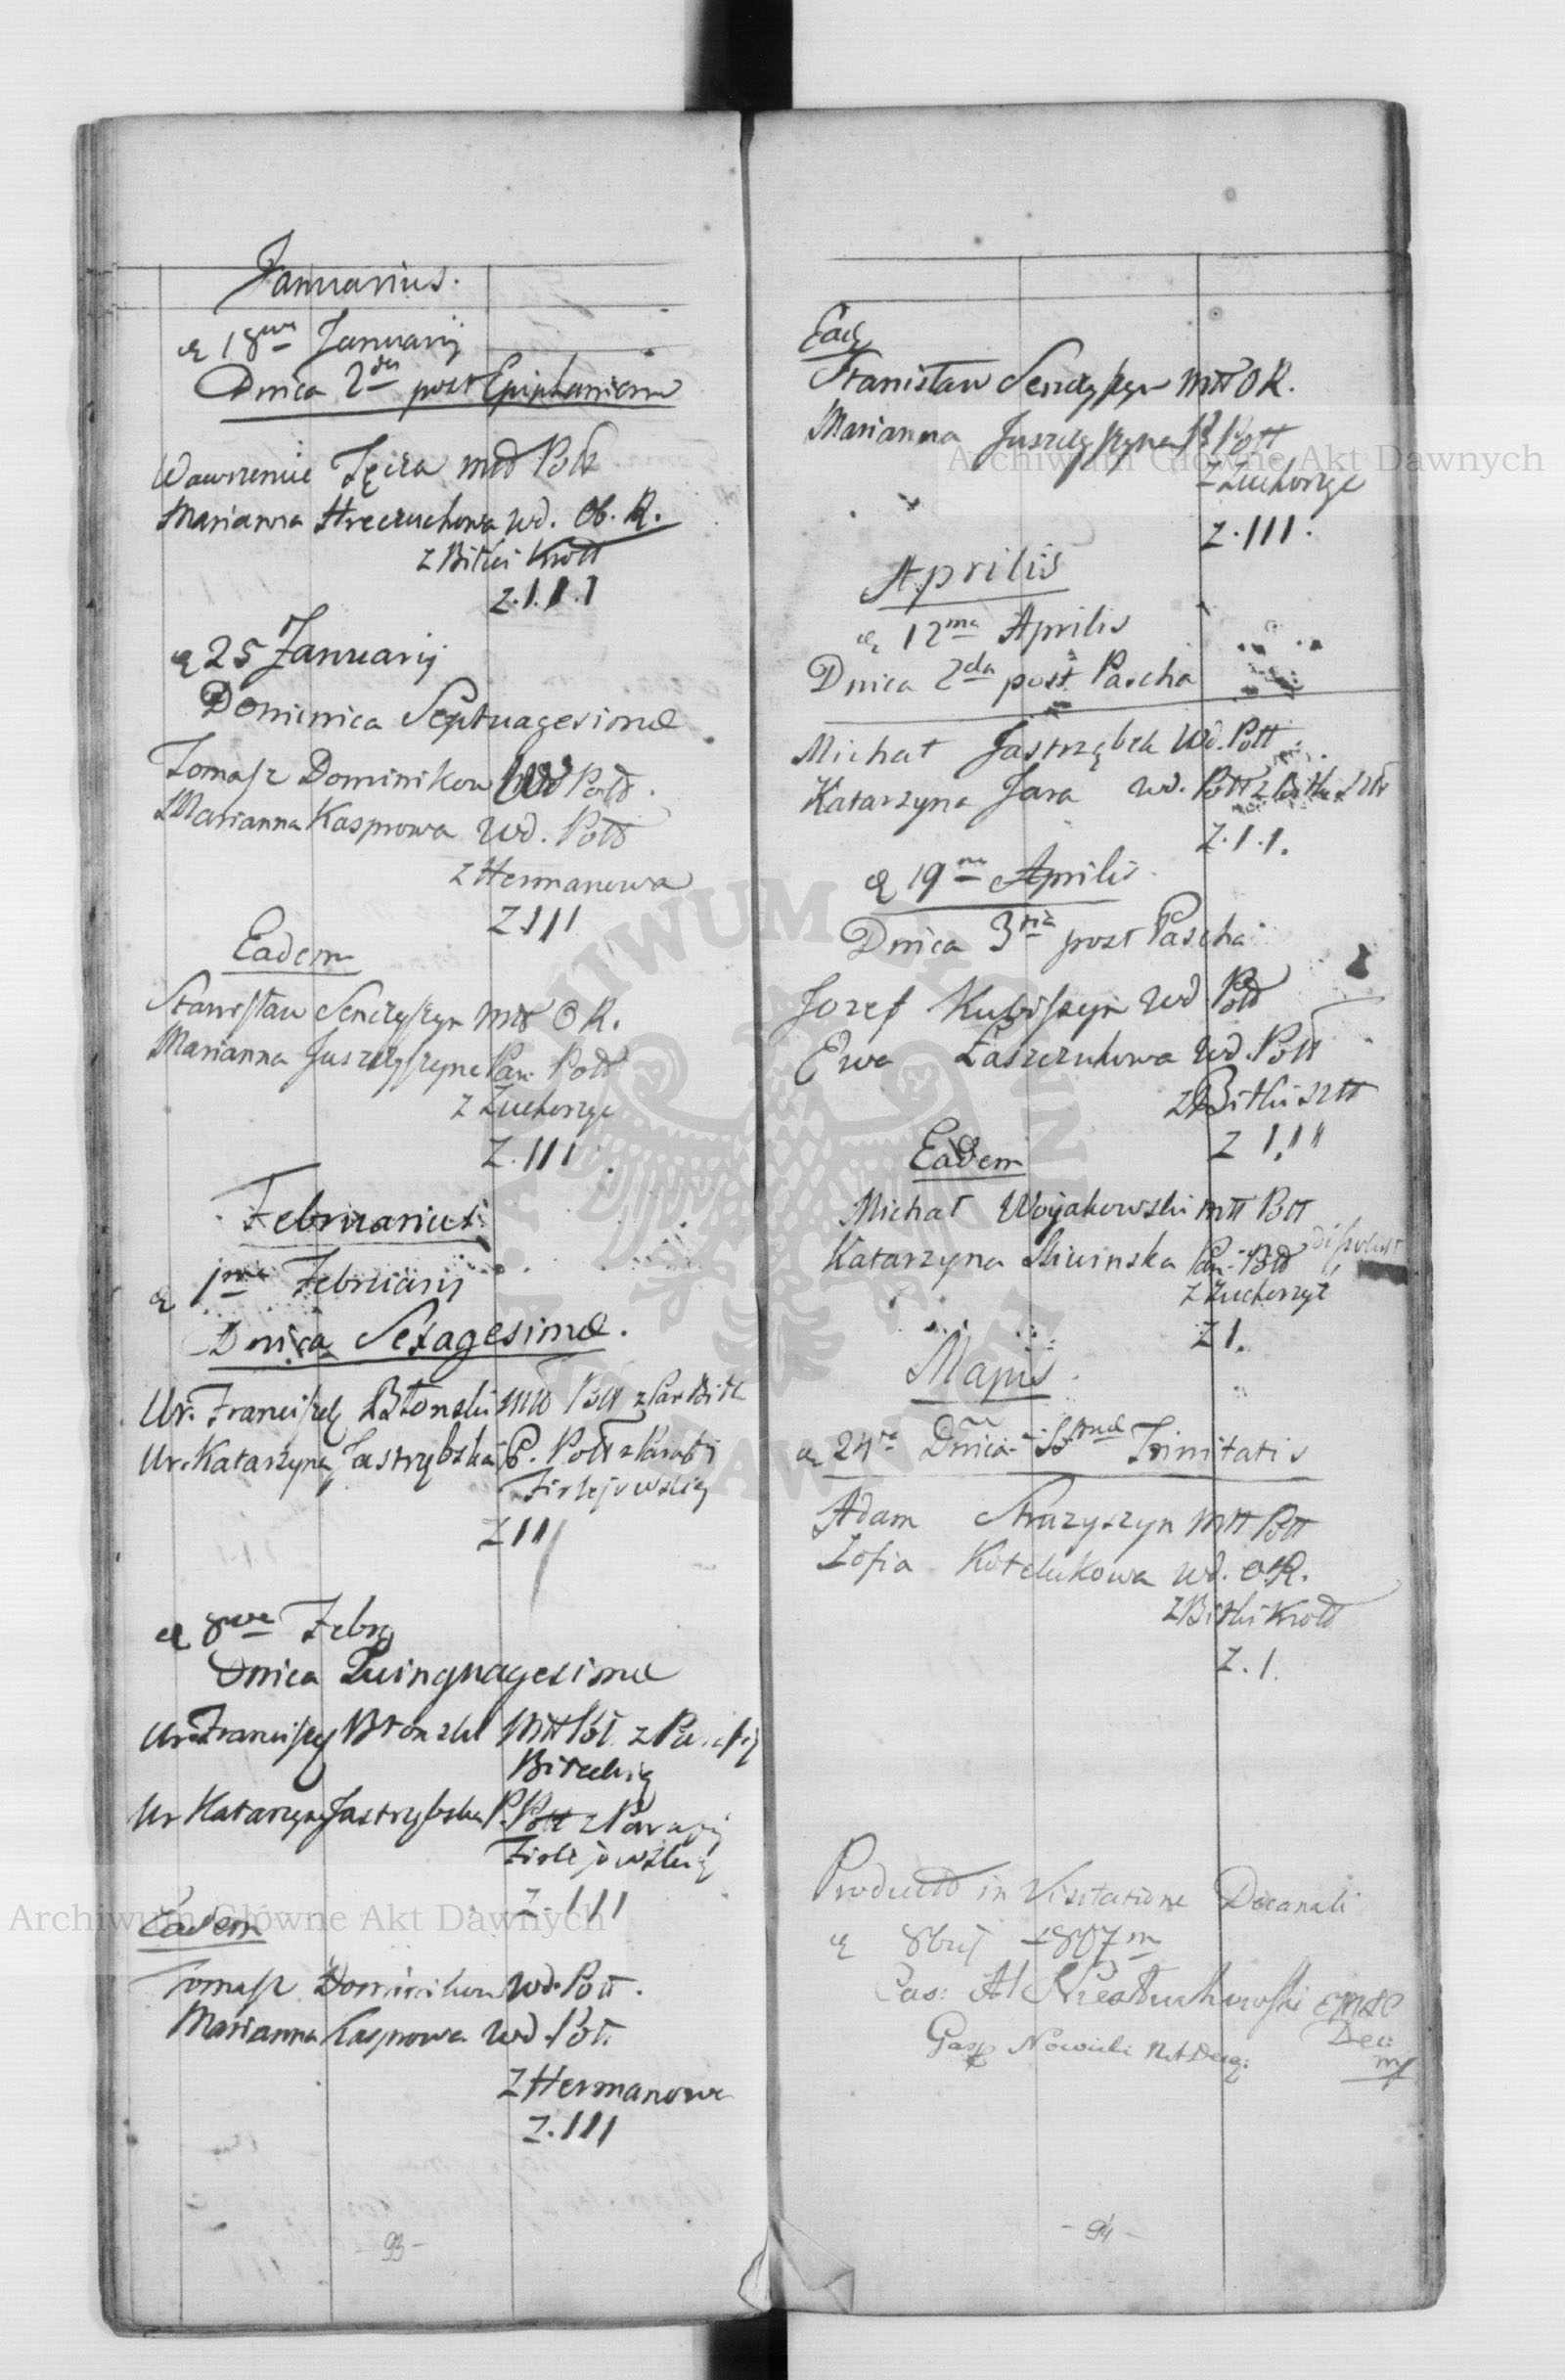 Januarius.
d 18va Januarij
Dnica 2da post Epiphaniam
Wawrzeniec Tęcza młd Poł
Marianna Hreczuchowa wd. Ob. R.
z Bitki Król
Z. I. I. I
d 25 Januarij
Dominica Septuagesimæ
Tomasz Dominikow Wd Połd.
Marianna Kasprowa Wd. Połd
z Hermanowa
Z III
Eadem
Stanisław Senczyszyn młd O R.
Marianna Juszczyszyna Pan. Połd
z Zuchorzyc
Z. III
Februarius
d 1ma Februarij
Dnica Sexagesimæ.
Ur. Franciszek Błonski młd Poł z Par Bit
Ur. Katarzyna Jastrzybska P. Poł z Parafij
Firlejowskiej
Z III
d 8va Febrij
Dnica Quinquagesimæ
Ur. Franciszek Błonski młł Poł. z Parafij
Biteckiej
Ur Katarzyna Jastrzybska P. Połł z Parafij
Firlejowskiej
Z. III
Eadem
Tomasz Dominikow Wd. Połł.
Marianna Kasprowa Wd. Poł.
z Hermanowa
Z. III
- 93 -
Ead
Stanisław Senczyszyn młł O R.
Marianna Juszczyszyna P. Połł
z Zuchorzyc
Z. III.
Aprilis
d 12ma Aprilis
Dnica 2da post Pascha
Michał Jastrząbek Wd. Połł
Katarzyna Jara wd. Połł z Bitki Szł
Z. I. I.
d 19na Aprilis
Dnica 3tia post Pascha
Jozef Kubiszyn Wd Połd
Ewa Łaszczukowa Wd. Połł
z Bitki Szł
Z I. I I
Eadem
Michał Woyakowski młł Połł
Katarzyna Sliwinska Pan. Połd
z Zuchorzyc
Z I.
Majus
d 24ta Dnica SSmæ Trinitatis
Adam Struzyszyn młł Połł
Zofia Kotelukowa wd. O R.
z Bitki Król
Z. I.
Product in Visitatione Decanali
d 8bris 1807m
Dec:
mp
Gasp Nowicki
- 94 -
Archiwum Główne Akt Dawnych
Archiwum Główne Akt Dawnych